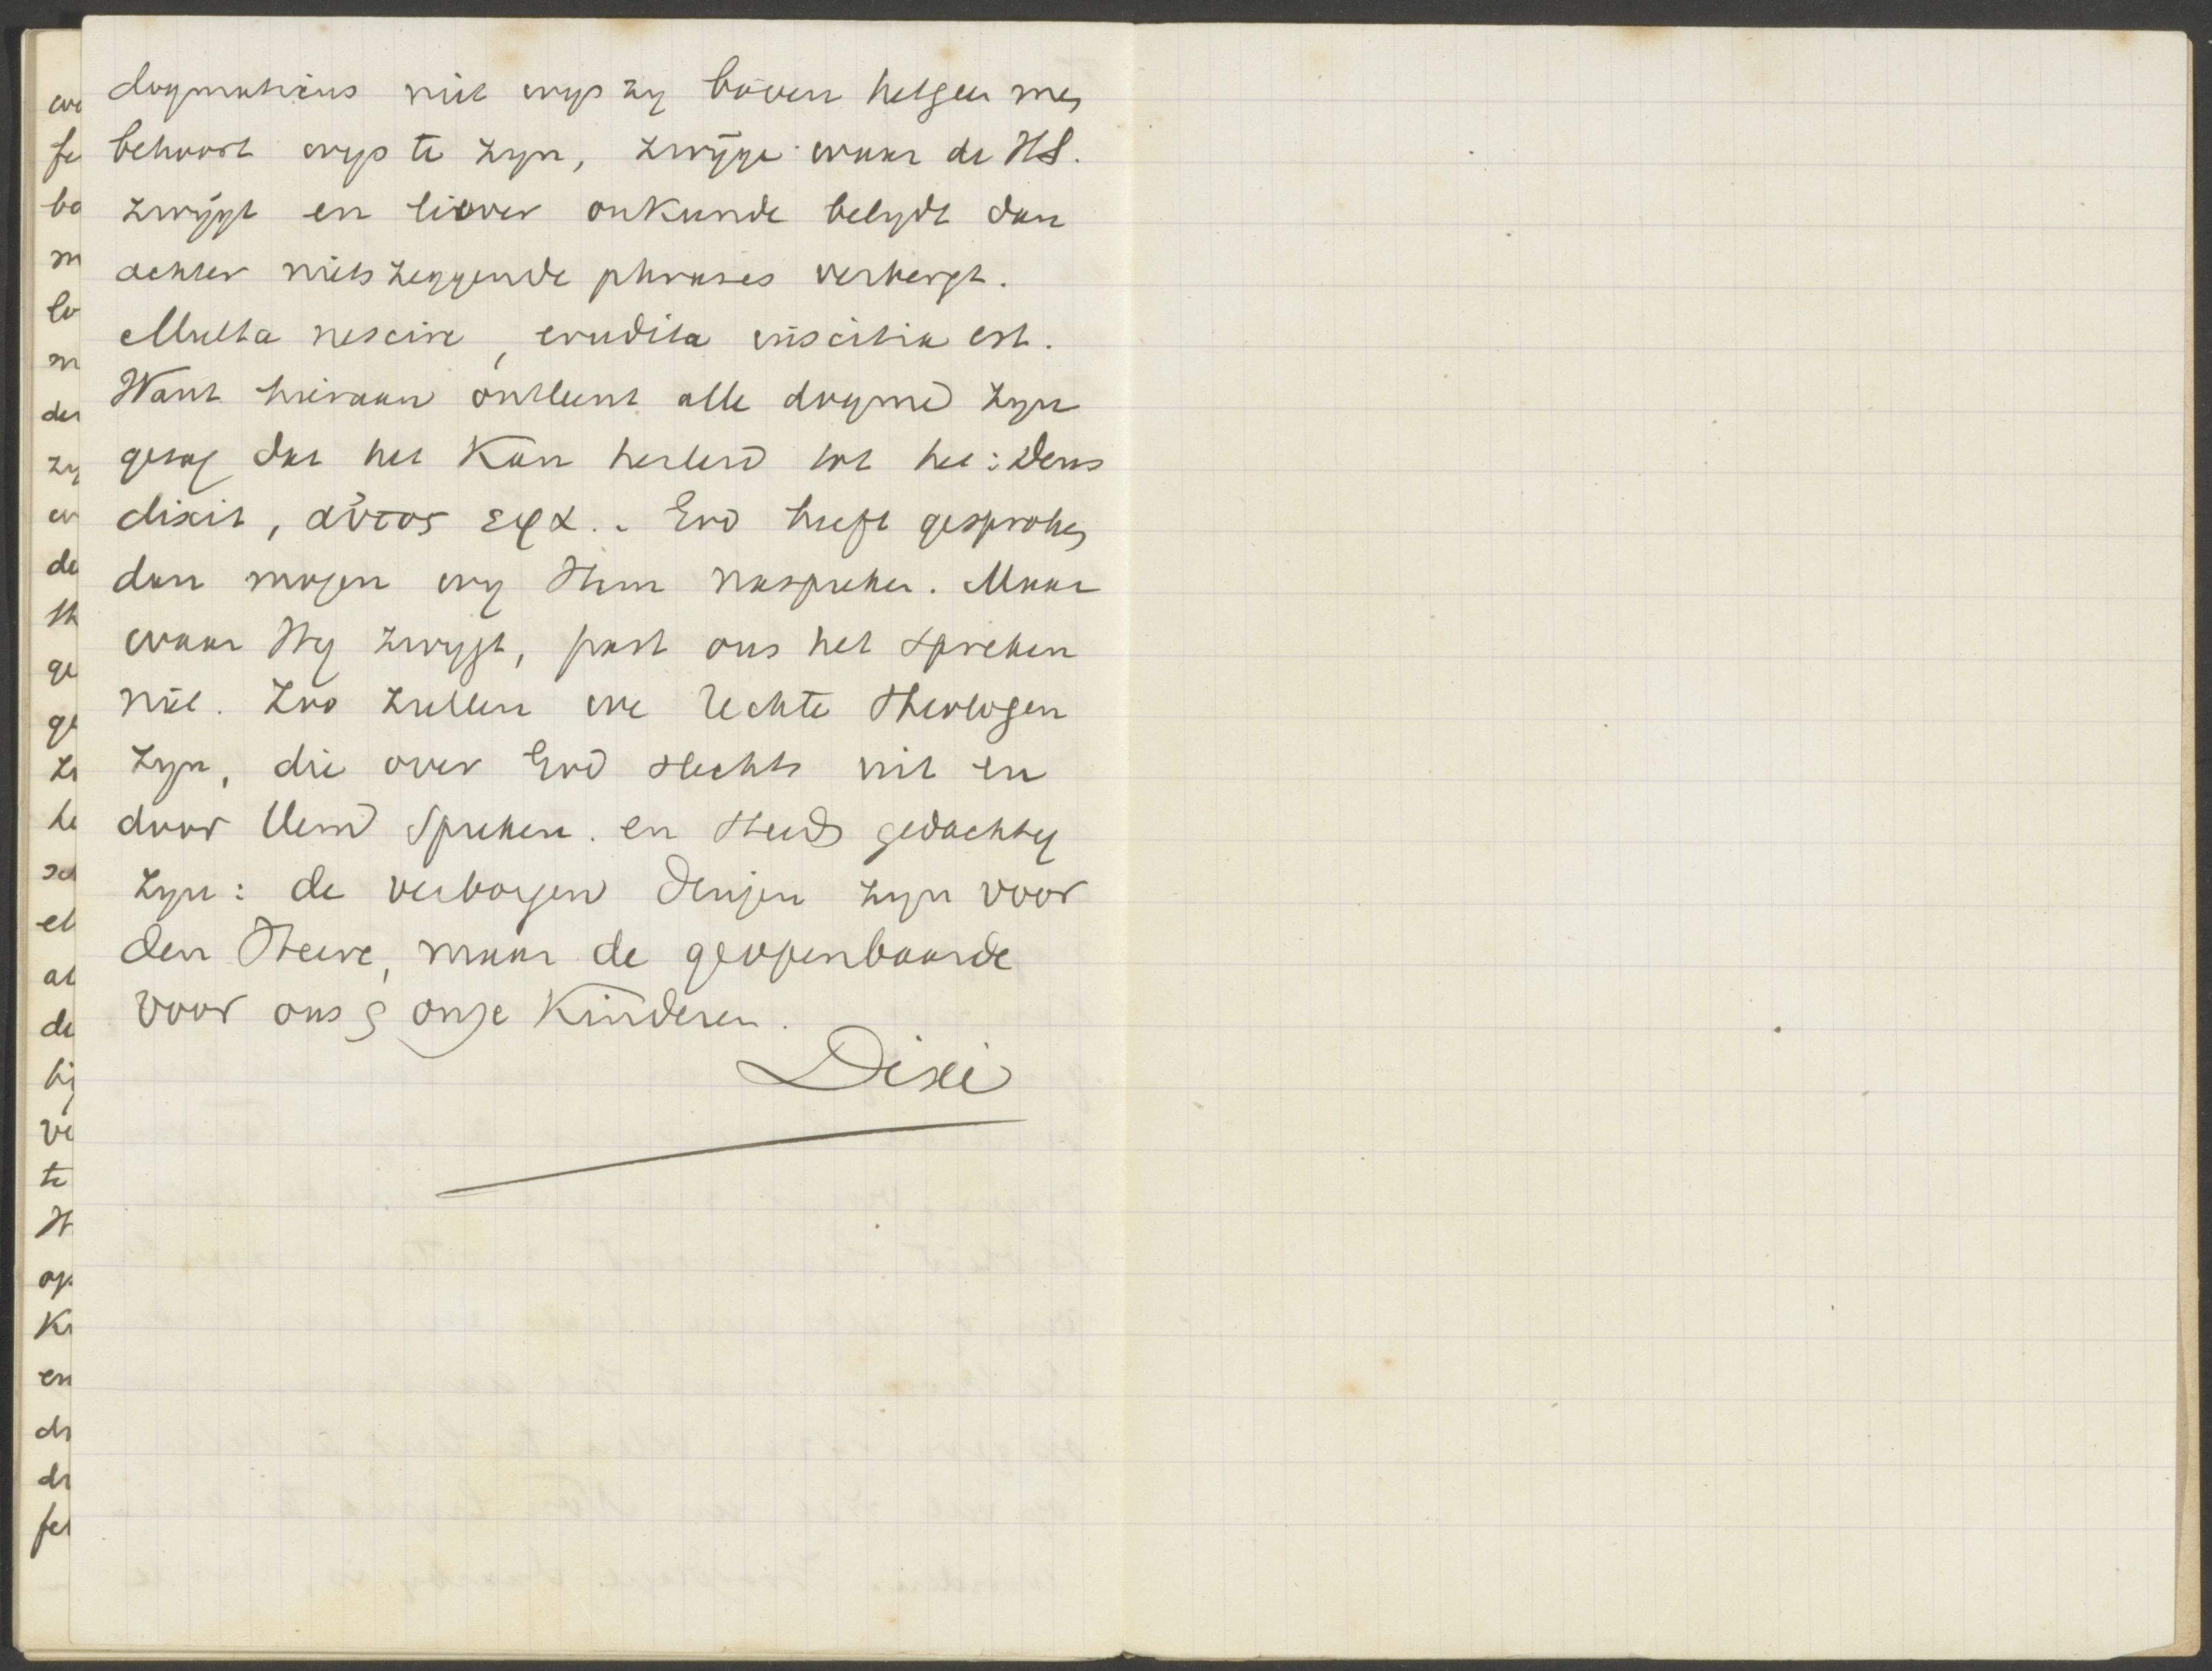 dogmaticus niet wys zy boven hetgeen men
behoort wys te zyn, zwyge waar de HS.
zwygt en liever onkunde belydt dan
achter nietszeggende phrases verbergt.
Multa nescire, erudita inscitia est.
Want hieraan ontleent alle dogma zyn
gezag dat het kan herleid tot het: Deus
dixit, αὐτος εφα. God heeft gesproken
dan mogen wy Hem naspreken. Maar
waar Hy zwygt, past ons het spreken
niet. Zoo zullen we rechte Theologen
zyn, die over God slechts uit en
door Hem spreken. en steeds gedachtig
zyn: de verborgen dingen zyn voor
den Heere, maar de geopenbaarde
voor ons & onze Kinderen.
Dixi